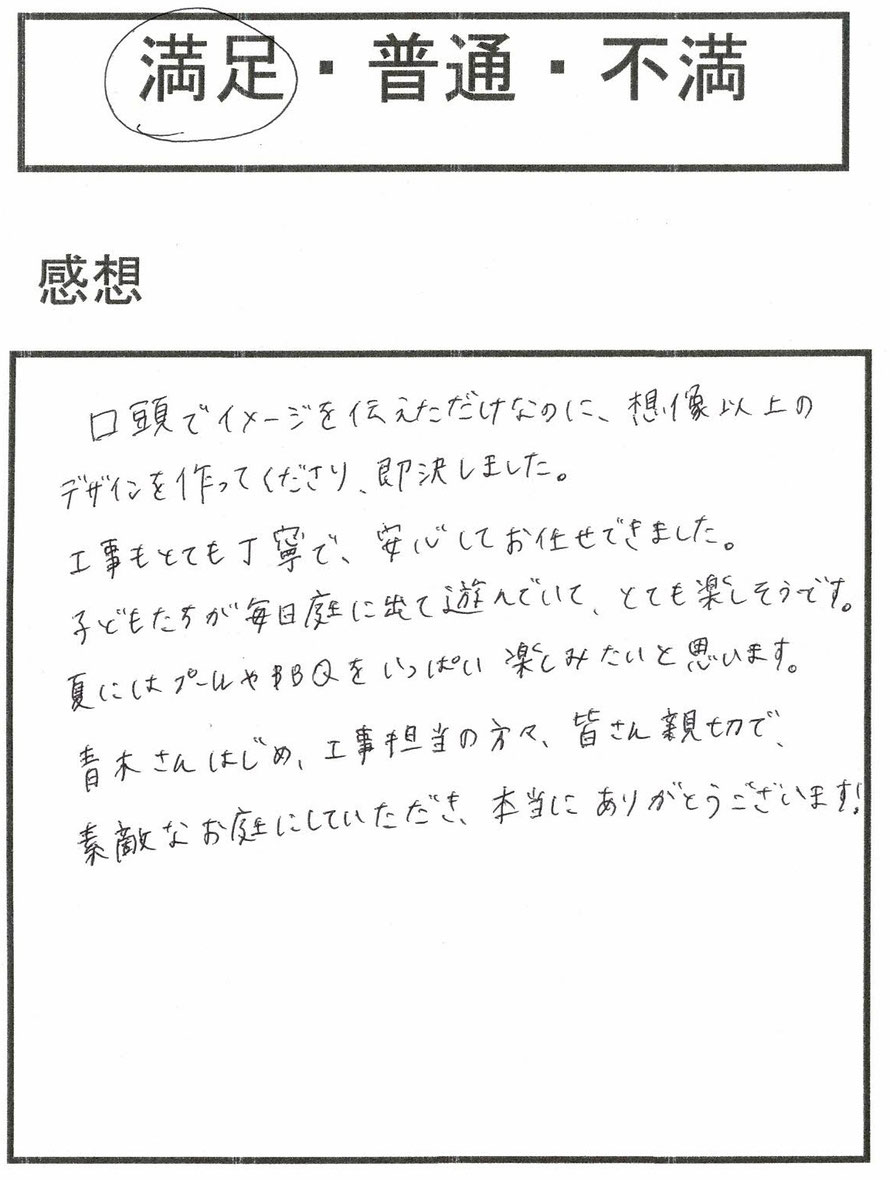 満足・普通・不満
感想
口頭でイメージを伝えただけなのに、想像以上の
デザインを作ってくださり、即決しました。
工事もとても丁寧で、安心してお任せできました。
子どもたちが毎日庭に出て遊んでいて、とても楽しそうです。
夏にはプールやBBQをいっぱい楽しみたいと思います。
青木さんはじめ、工事担当の方々、皆さん親切で、
素敵なお庭にしていただき、本当にありがとうございます!